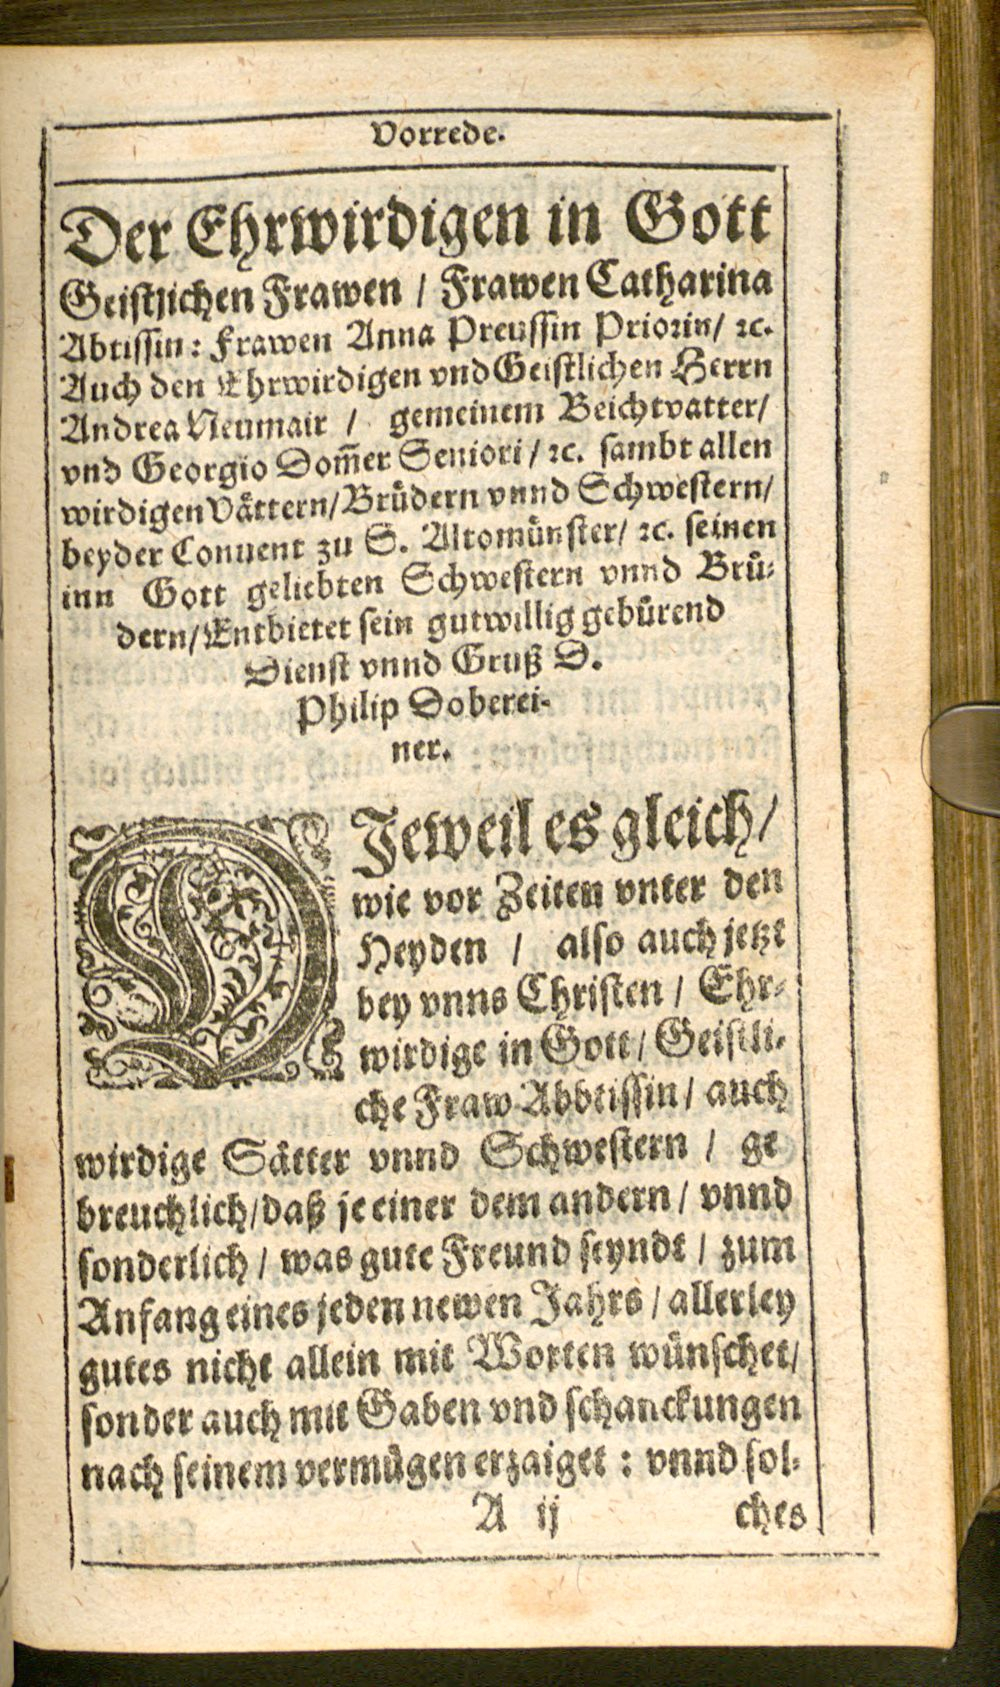 Vorrede.
Der Ehrwirdigen in Gott
Geistlichen Frawen / Frawen Catharina
Abtissin: Frawen Anna Preussin Priorin/ ꝛc.
Auch den Ehrwirdigen vnd Geistlichen Herrn
Andrea Neumair / gemeinem Beichtvatter/
vnd Georgio Dom̃er Seniori / ꝛc. sambt allen
wirdigen Vaͤttern/ Bruͤdern vnnd Schwestern/
beyder Conuent zu S. Altomuͤnster/ ꝛc. seinen
inn Gott geliebten Schwestern vnnd Bruͤ-
dern/ Entbietet sein gutwillig gebuͤrend
Dienst vnnd Gruß D.
Philip Doberei-
ner.
DJeweil es gleich/
wie vor Zeiten vnter den
Heyden / also auch jetzt
bey vnns Christen / Ehr-
wirdige in Gott / Geistli-
che Fraw Abbtissin / auch
wirdige Saͤtter vnnd Schwestern / ge
breuchlich/ daß je einer dem andern / vnnd
sonderlich / was gute Freund seyndt / zum
Anfang eines jeden newen Jahrs / allerley
gutes nicht allein mit Worten wuͤnschet/
sonder auch mit Gaben vnd schanckungen
nach seinem vermuͤgen erzaiget : vnnd sol-
A ij ches